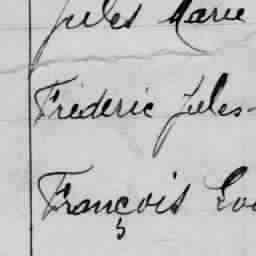 Jules Marie
Frédéric Jules-
François